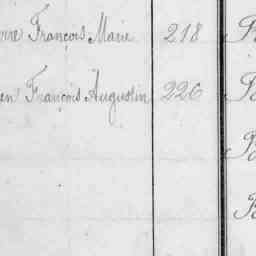 François Marie 218
François Augustin 226